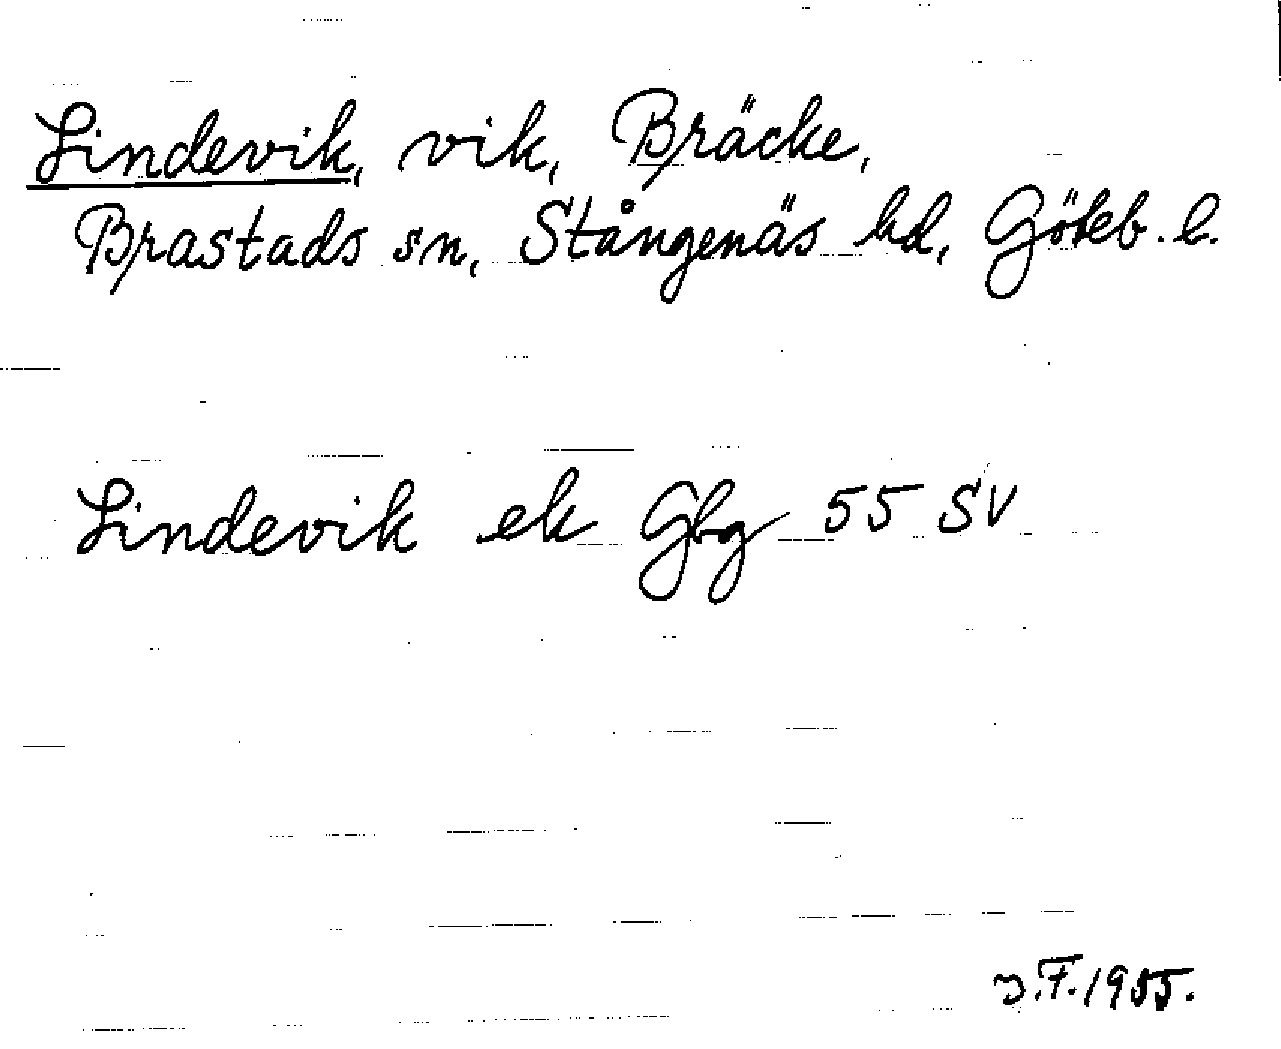 Lindevik, vik, Bräcke,
Brastads sn, Stångenäs hd, Göteb. l.
Lindevik ek Gbg 55 SV
J.F. 1955.